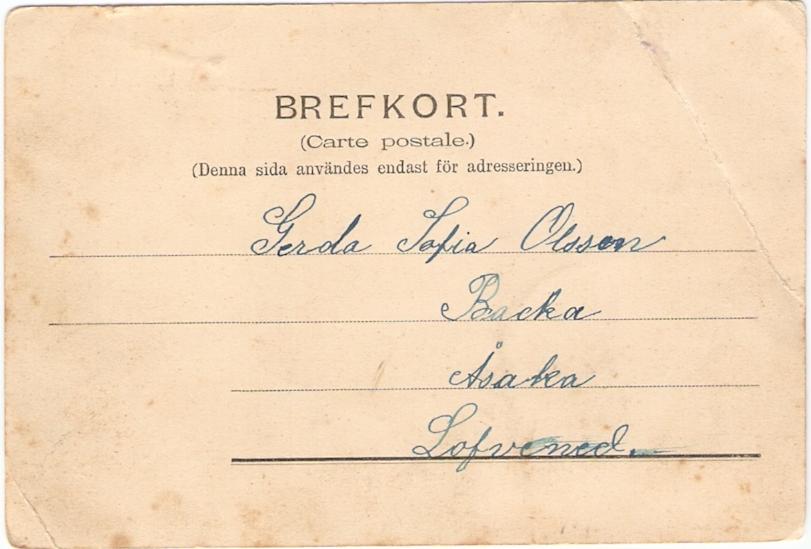 BREFKORT.
(Carte postale.)
(Denna sida användes endast för adresseringen.)
Gerda Sofia Olsson
Backa
Åsaka
Lofvened.